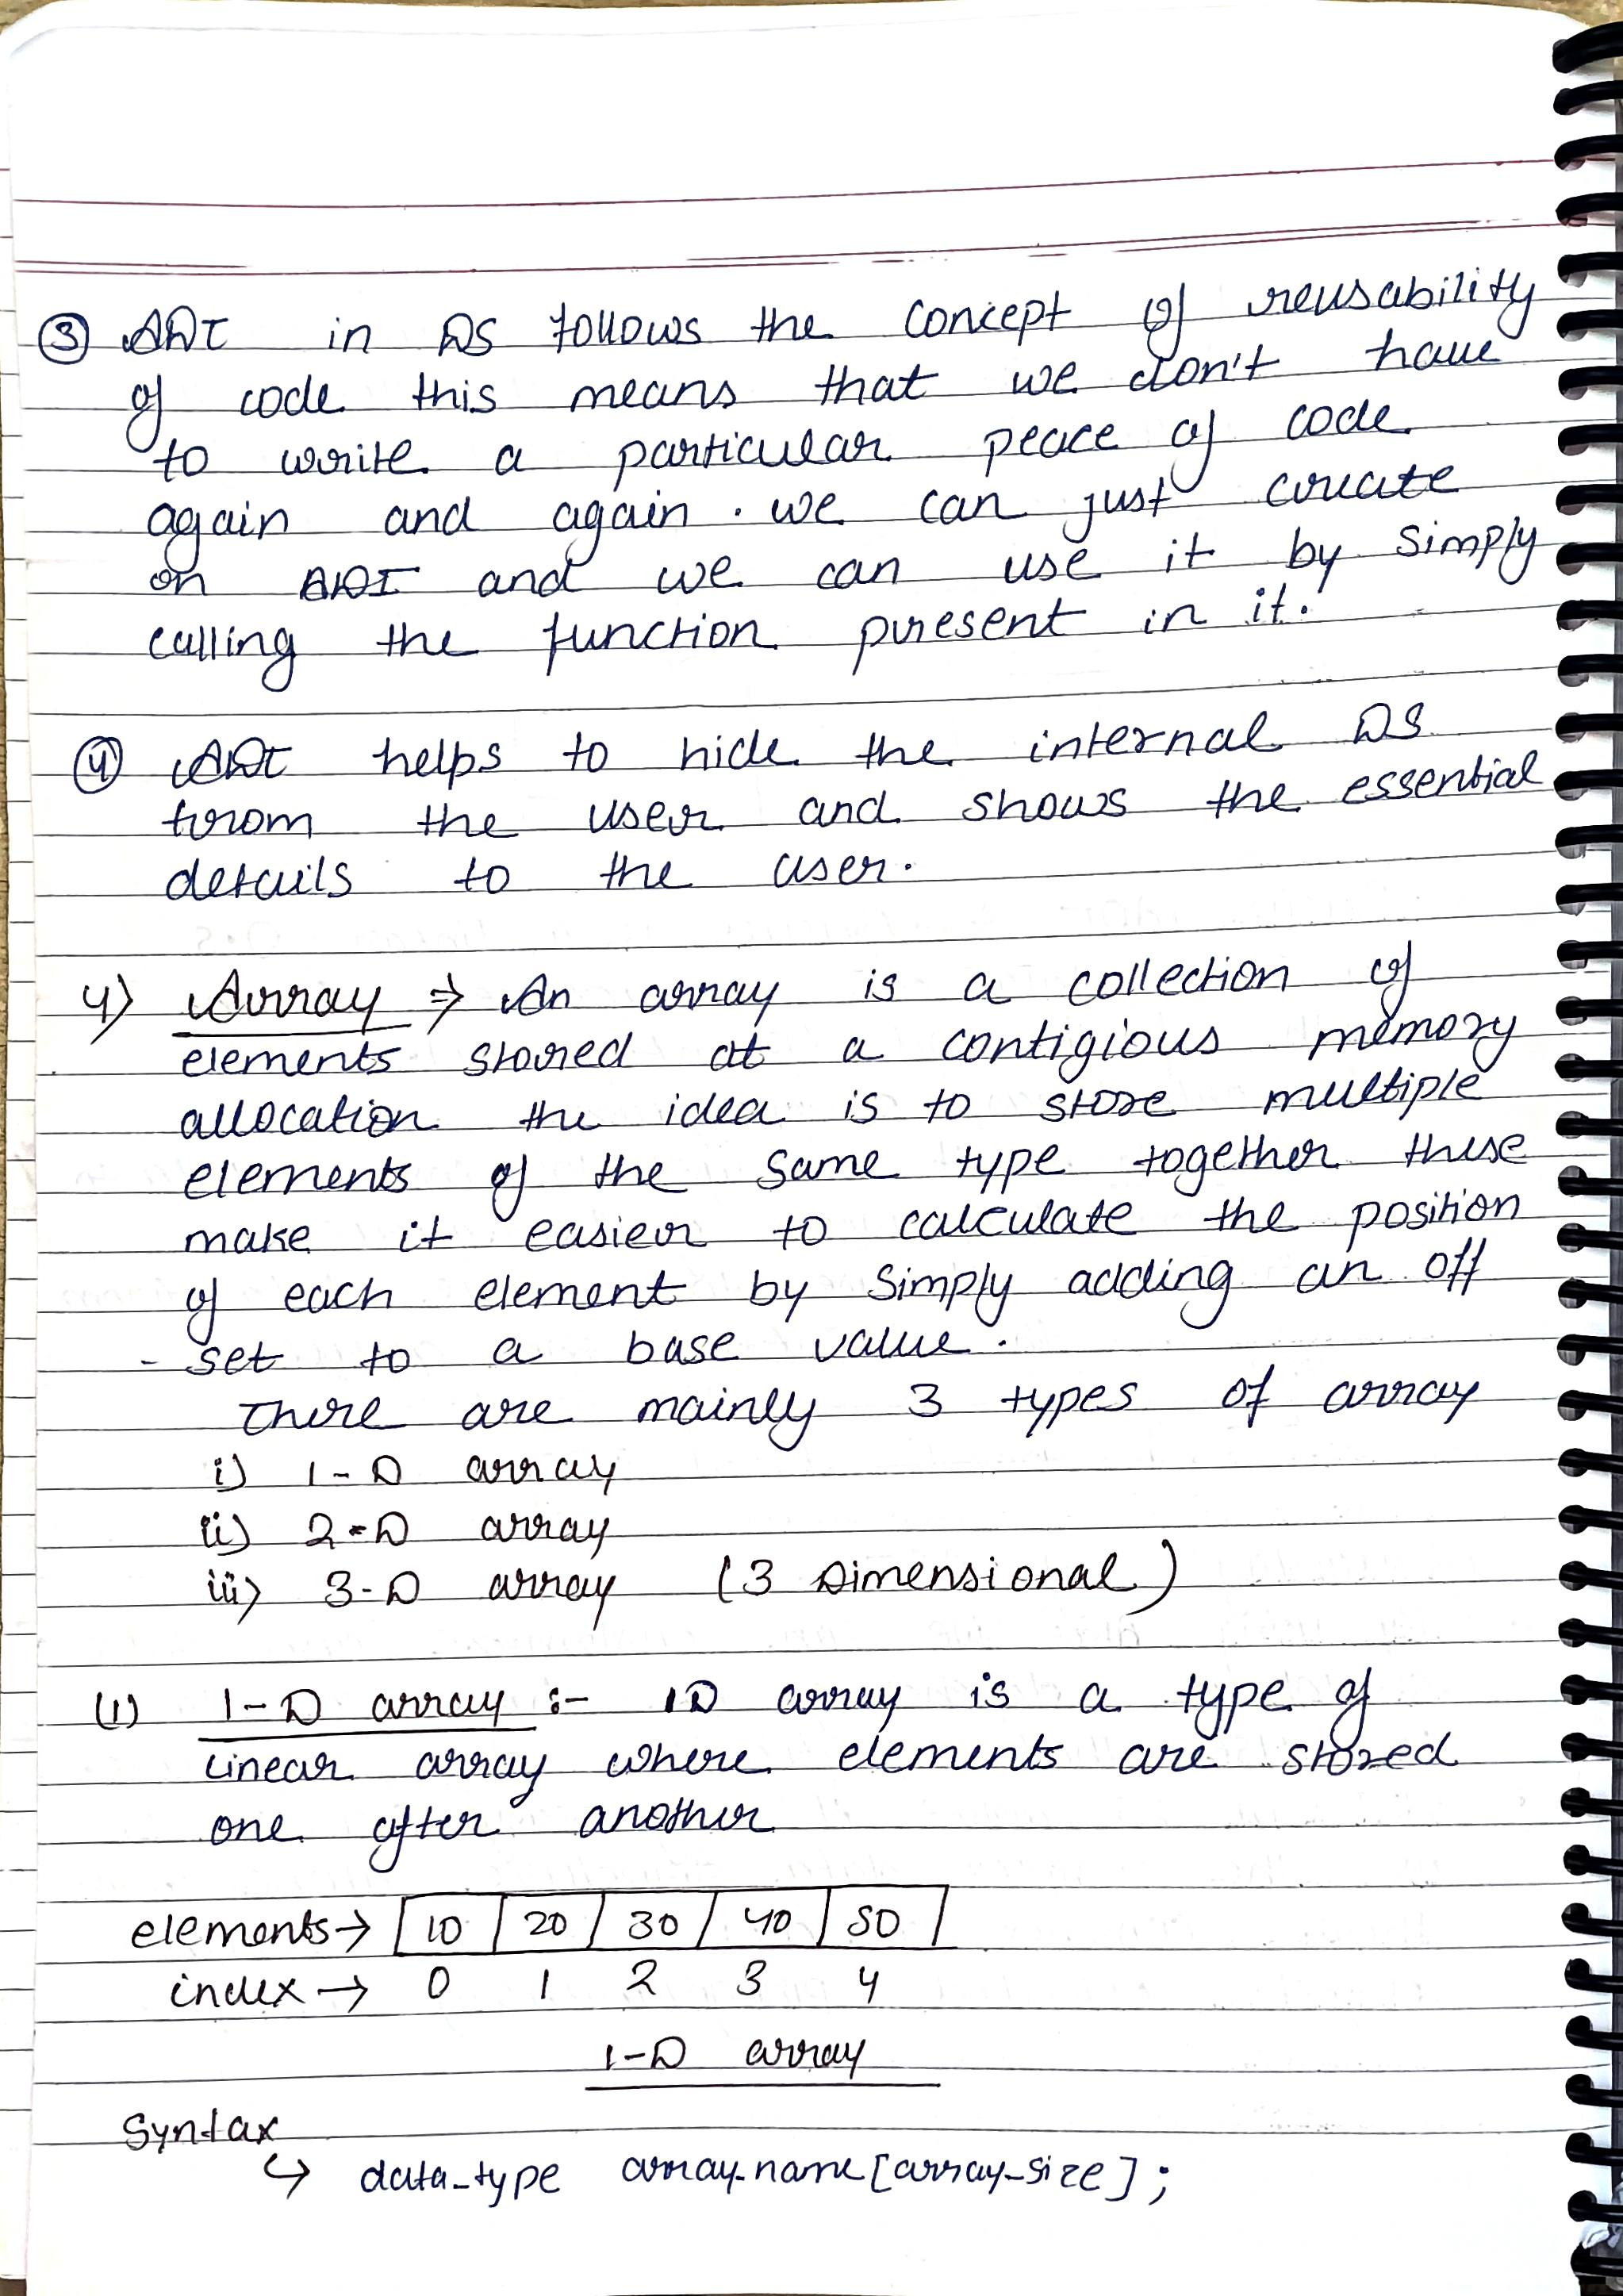 ③ ADT in DS follows the concept of reusability
of code this means that we don't have
to write a particular peace of code
again and again. we can just create
an ADT and we can use it by simply
calling the function present in it.
④ ADT helps to hide the internal DS
from the user and shows the essential
details to the user.
4) Array ⇒ An array is a collection of
elements stored at a contigious memory
allocation the idea is to store multiple
elements of the same type together these
make it easier to calculate the position
of each element by simply adding an off
- set to a base value.
There are mainly 3 types of array
i) 1-D array
ii) 2-D array
iii) 3-D array (3 Dimensional)
(1) 1-D array :- 1D array is a type of
linear array where elements are stored
one after another
elements → 10 20 30 40 50
index → 0 1 2 3 4
1-D array
Syntax
↪ data_type array_name[array_size];